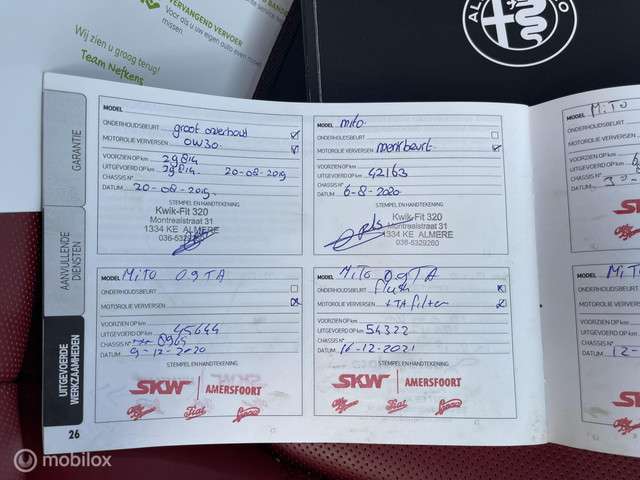 VERVANGEND VERVOER
Wij zien u graag terug!
Team Nefkens
GARANTIE
AANVULLENDE
DIENSTEN
UITGEVOERDE
WERKZAAMHEDEN
26
MODEL
ONDERHOUDSBEURT groot onderhoud
MOTOROLIE VERVERSEN 0W30
VOORZIEN OP km 29814
UITGEVOERD OP km 29814 20-08-2019
CHASSIS N°
DATUM 20-08-2019
STEMPEL EN HANDTEKENING
Kwik-Fit 320
Montrealstraat 31
1334 KE ALMERE
MODEL mito
ONDERHOUDSBEURT
MOTOROLIE VERVERSEN merkbeurt
VOORZIEN OP km
UITGEVOERD OP km 42163
CHASSIS N°
DATUM 6-8-2020
STEMPEL EN HANDTEKENING
Kwik-Fit 320
Montrealstraat 31
1334 KE ALMERE
036-5329260
MODEL MiTO 09TA
ONDERHOUDSBEURT
MOTOROLIE VERVERSEN
VOORZIEN OP km
UITGEVOERD OP km 45644
CHASSIS N°
DATUM 9-12-2020
STEMPEL EN HANDTEKENING
SKW AMERSFOORT
Fiat
MODEL MiTO 09TA
ONDERHOUDSBEURT flush
MOTOROLIE VERVERSEN + TA filter
VOORZIEN OP km
UITGEVOERD OP km 54322
CHASSIS N°
DATUM 16-12-2021
STEMPEL EN HANDTEKENING
SKW AMERSFOORT
Fiat
MODEL MiTO
ONDERHOUDSBEURT
MOTOROLIE VERVERSEN
VOORZIEN OP km
UITGEVOERD OP km
CHASSIS N°
DATUM
MODEL MiTO
ONDERHOUDSBEURT
MOTOROLIE VERVERSEN
VOORZIEN OP km
UITGEVOERD OP km
CHASSIS N°
DATUM 12-
SKW
mobilox